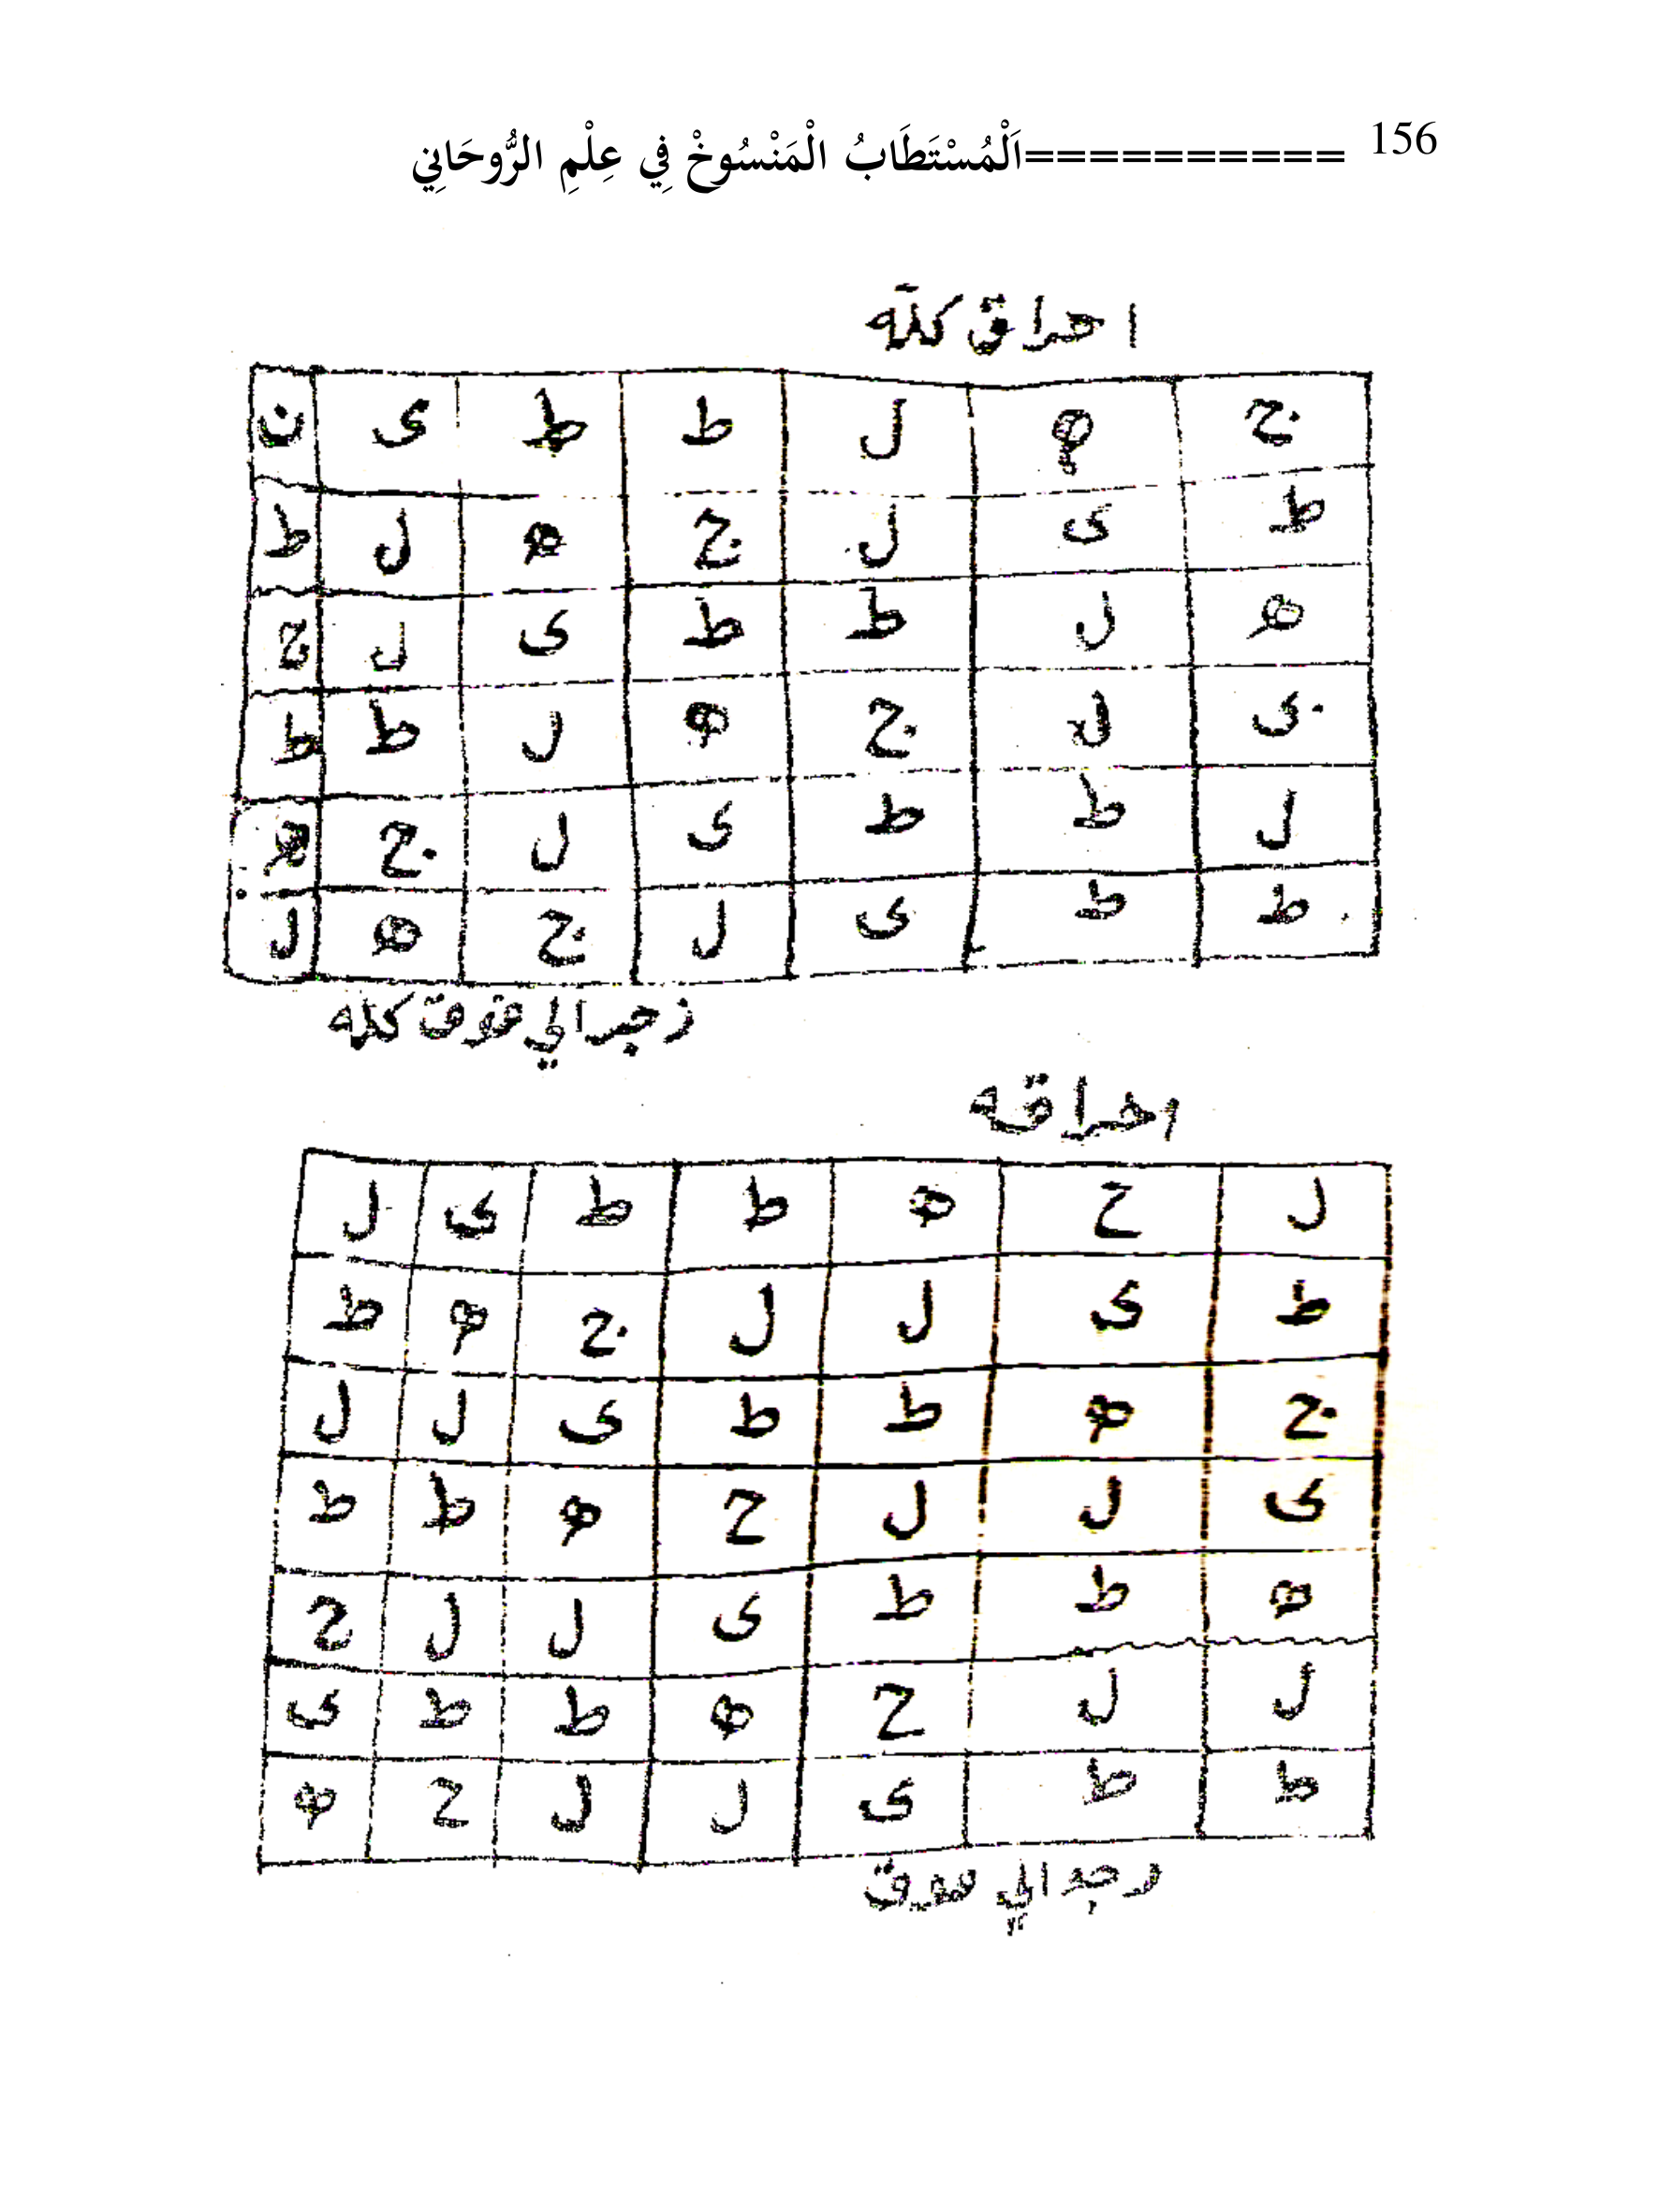 156 ==========اَلْمُسْتَطَابُ الْمَنْسُوخْ فِي عِلْمِ الرُّوحَانِي
احراق كله
ج ه ل ط ط ى ن
ط ى ل ج ه ل ط
ه ل ط ط ى ل ج
ى ل ج ه ل ط ط
ل ط ط ى ل ج ه
ط ط ى ل ج ه ل
زجر الي فوق كله
احراقه
ل ح ه ط ط ى ل
ط ى ل ل ج ه ط
ج ه ط ط ى ل ل
ى ل ل ح ه ط ط
ه ط ط ى ل ل ح
ل ل ح ه ط ط ى
ط ط ى ل ل ح ه
الي فوق